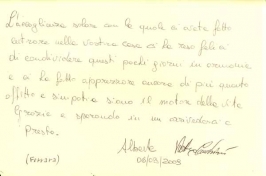 L'accoglienza solare con la quale ci avete fatto
entrare nella vostra casa ci ha reso felici
di condividere questi pochi giorni in armonia
e ci ha fatto apprezzare ancora di più quanto
affitto e simpatia siano il motore della vita
Grazie e sperando in un arrivederci a
Presto.
Alberto
(FERRARA) 06/03/2009